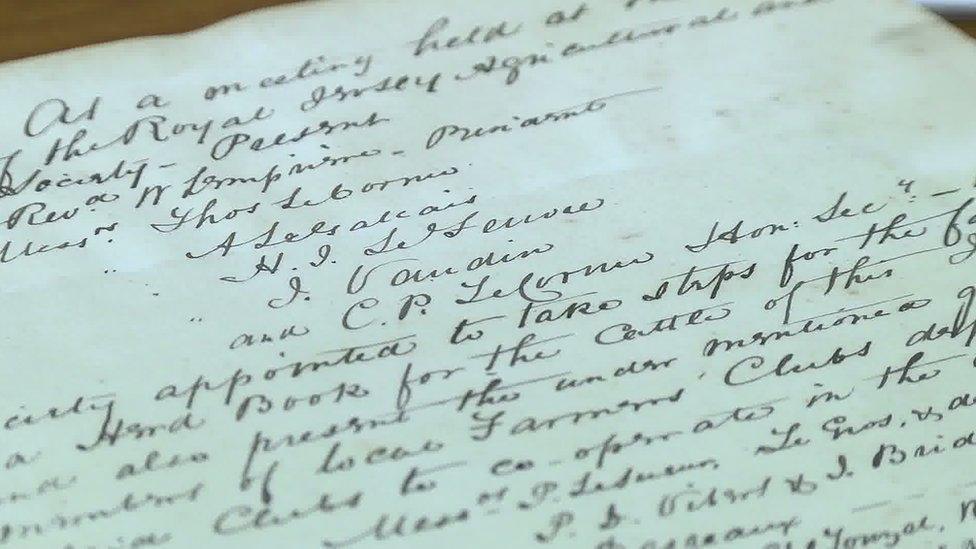 At a meeting held at
of the Royal Jersey Agricultural and
Society - Present
Revd. W Lempriere - President
Messrs. Thos LeCornu
" A LeGallais
H. J. Le
" J. Vaudin
and C. P. LeCornu Hon: Secy: -
ciety appointed to take steps for the f
a Herd Book for the Cattle of this
and also present the under mentioned g
members of local Farmers Clubs dep
Clubs to co-operate in the
Messrs P. LeSueur, Le Gros, & de
P. D. Vibert & J. Brid